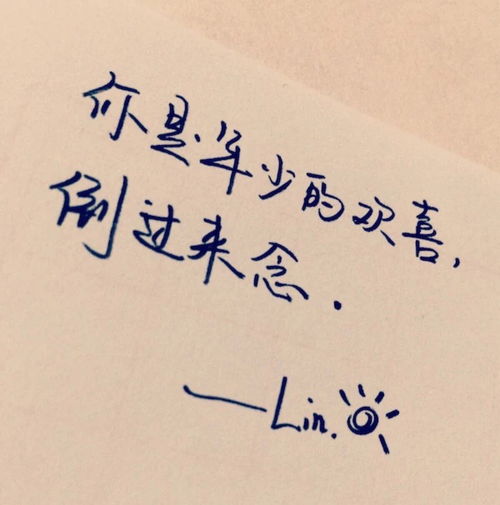 你是年少的欢喜,
倒过来念.
—Lin.